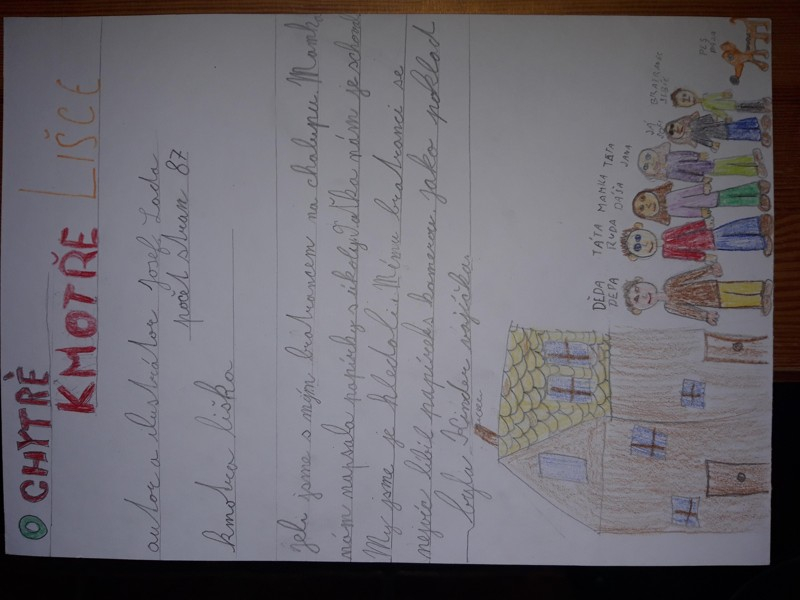 O CHYTRÉ
KMOTŘE LIŠCE
autor a ilustrátor Josef Lada
počet stran 87
kmotra liška
jeli jsme s mým bratrancem na chalupu. Mamka
nám napsala papírky s úkoly. Taťka nám je schoval
My jsme je hledali. Mému bratranci se
nejvíc líbil papírek kamarau jako poklad
byla Kinder vajíčka.
DĚDA
DĚPA
TÁTA
RUDA
MAMKA
DÁŠA
TETA
JANA
JÁ
BRATRANEC
PES